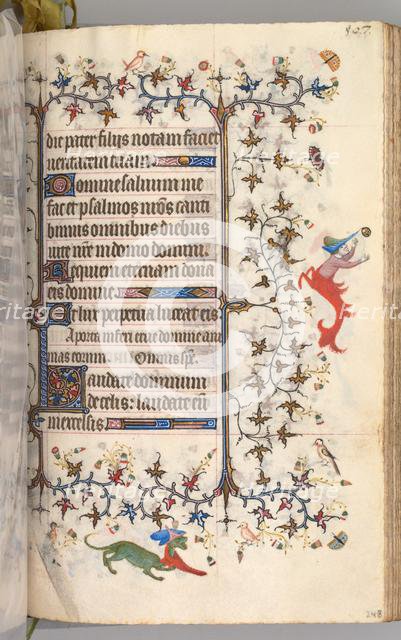 407.
die pater filijs notam faciet
ueritatem tuam.
Domine saluum me
fac et psalmos nr̄os canta
bimus omnibus diebus
uite nr̄e in domo domini.
Requiem eternam dona
eis domine.
Et lux perpetua luceat eis
A porta inferi erue domine ani
mas eorum. Omnis sp̄c.
Laudate dominum
de celis: laudate eū
in excelsis.
248
Heritage Images
Heritage Images